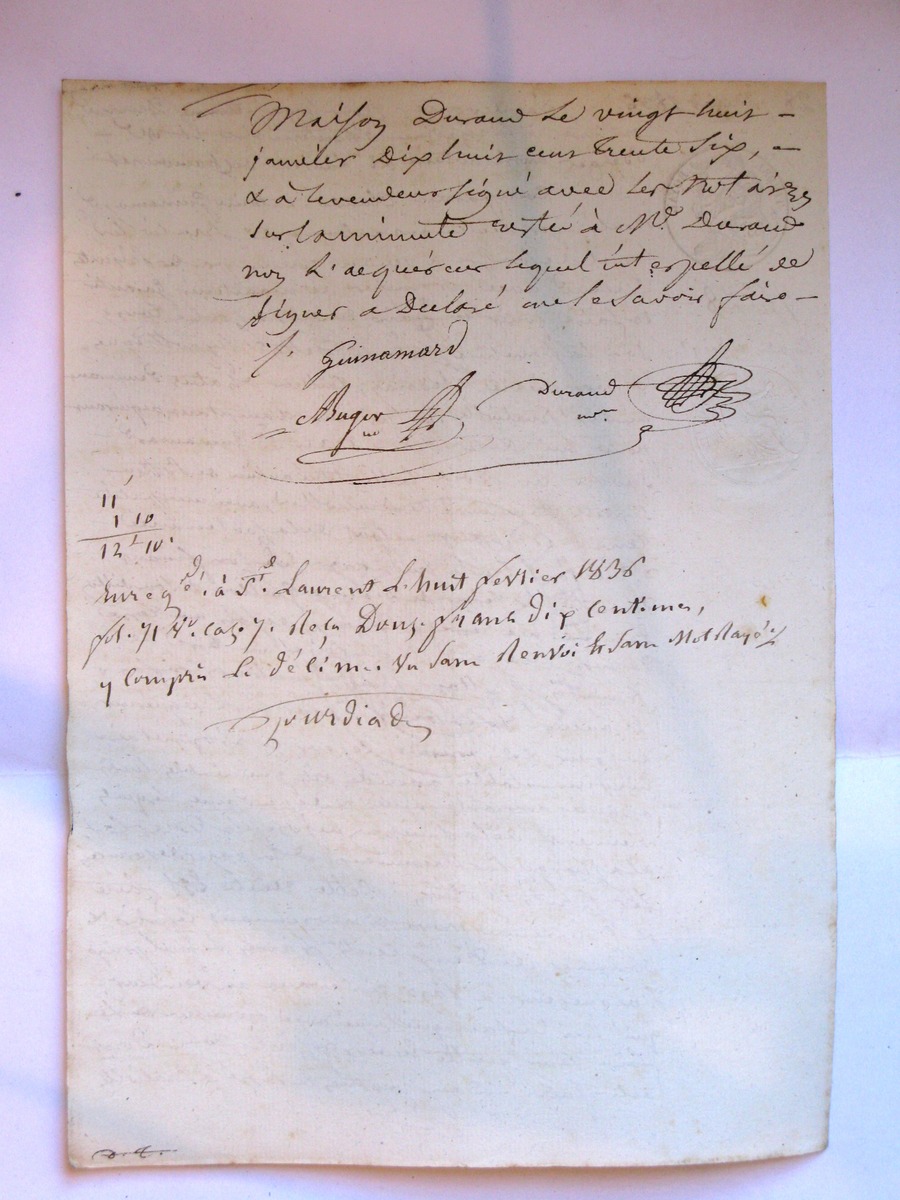 Maison Durand le vingt huit
janvier Dix huit cent trente six,
& a le vendeur signé avec les Notaires
sur la minute restée à Me. Durand
non l'acquéreur lequel interpellé de
signer a Declaré ne le savoir faire
Guinamard
Buger
Durand
nre
11
1 10
12 10
Enregé. à St. Laurent le huit fevrier 1836
fol. 71 Vo. Cas. 7. Reçu Douze francs dix centimes,
y compris le décime. Vu sans Renvoi & sans Mot Rayé